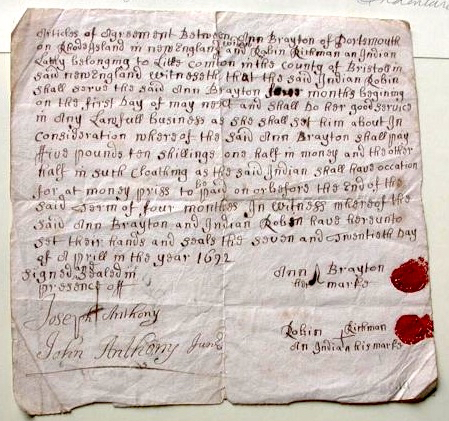 Indenture
Articles of Agreement Between Ann Brayton of Portsmouth
on Rhode Island in new England widow and Robin Kirkman an Indian
Latly belonging to Litle Comton in the county of Bristoll in
said new England witneseth that the said Indian Robin
shall serve the said Ann Brayton four months begining
on the first Day of may next and shall Do her good service
in Any Lanfull business as she shall set him about In
Consideration whereof the said Ann Brayton shall pay
ffive pounds ten shillings one half in money and the other
half in such Cloathing as the said Indian shall have occation
for at money priss to be paid on or before the End of the
said Term of four months In witness whereof the
said Ann Brayton and Indian Robin have hereunto
set their hands and seals the seven and Twentieth Day
of Aprill in the year 1692
Signed and Sealed in
presence off
Ann Brayton
her marke
Joseph Anthony
John Anthony Junr
Robin Kirkman
An Indian his marke